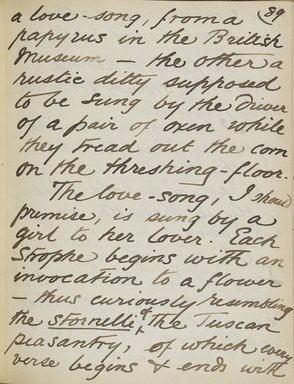 a love-song, from a 39
papyrus in the British
Museum — the other a
rustic ditty supposed
to be sung by the driver
of a pair of oxen while
they tread out the corn
on the threshing-floor.
The love-song, I should
premise, is sung by a
girl to her lover. Each
Strophe begins with an
invocation to a flower
— thus curiously resembling
the stornelli of the Tuscan
peasantry, of which every
verse begins & ends with